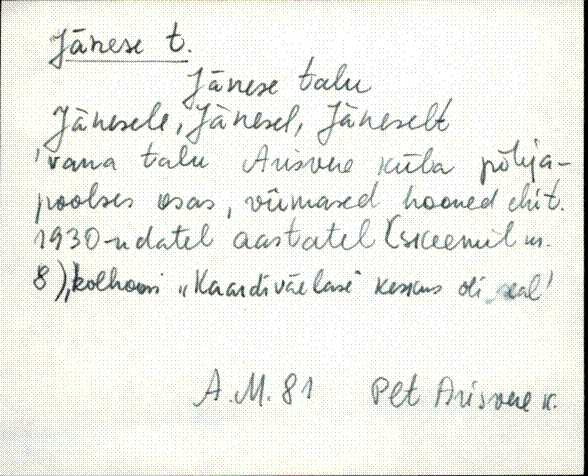 Jänese t.
Jänese talu
Jänesele, Jänesel, Jäneselt
'vana talu Arisvere küla põhja-
poolses osas, viimased hooned ehit.
1930-ndatel aastatel (skeemil nr.
8), kolhoosi "Kaardiväelase" keskus oli seal'
A.M. 81 Plt Arisvere k.